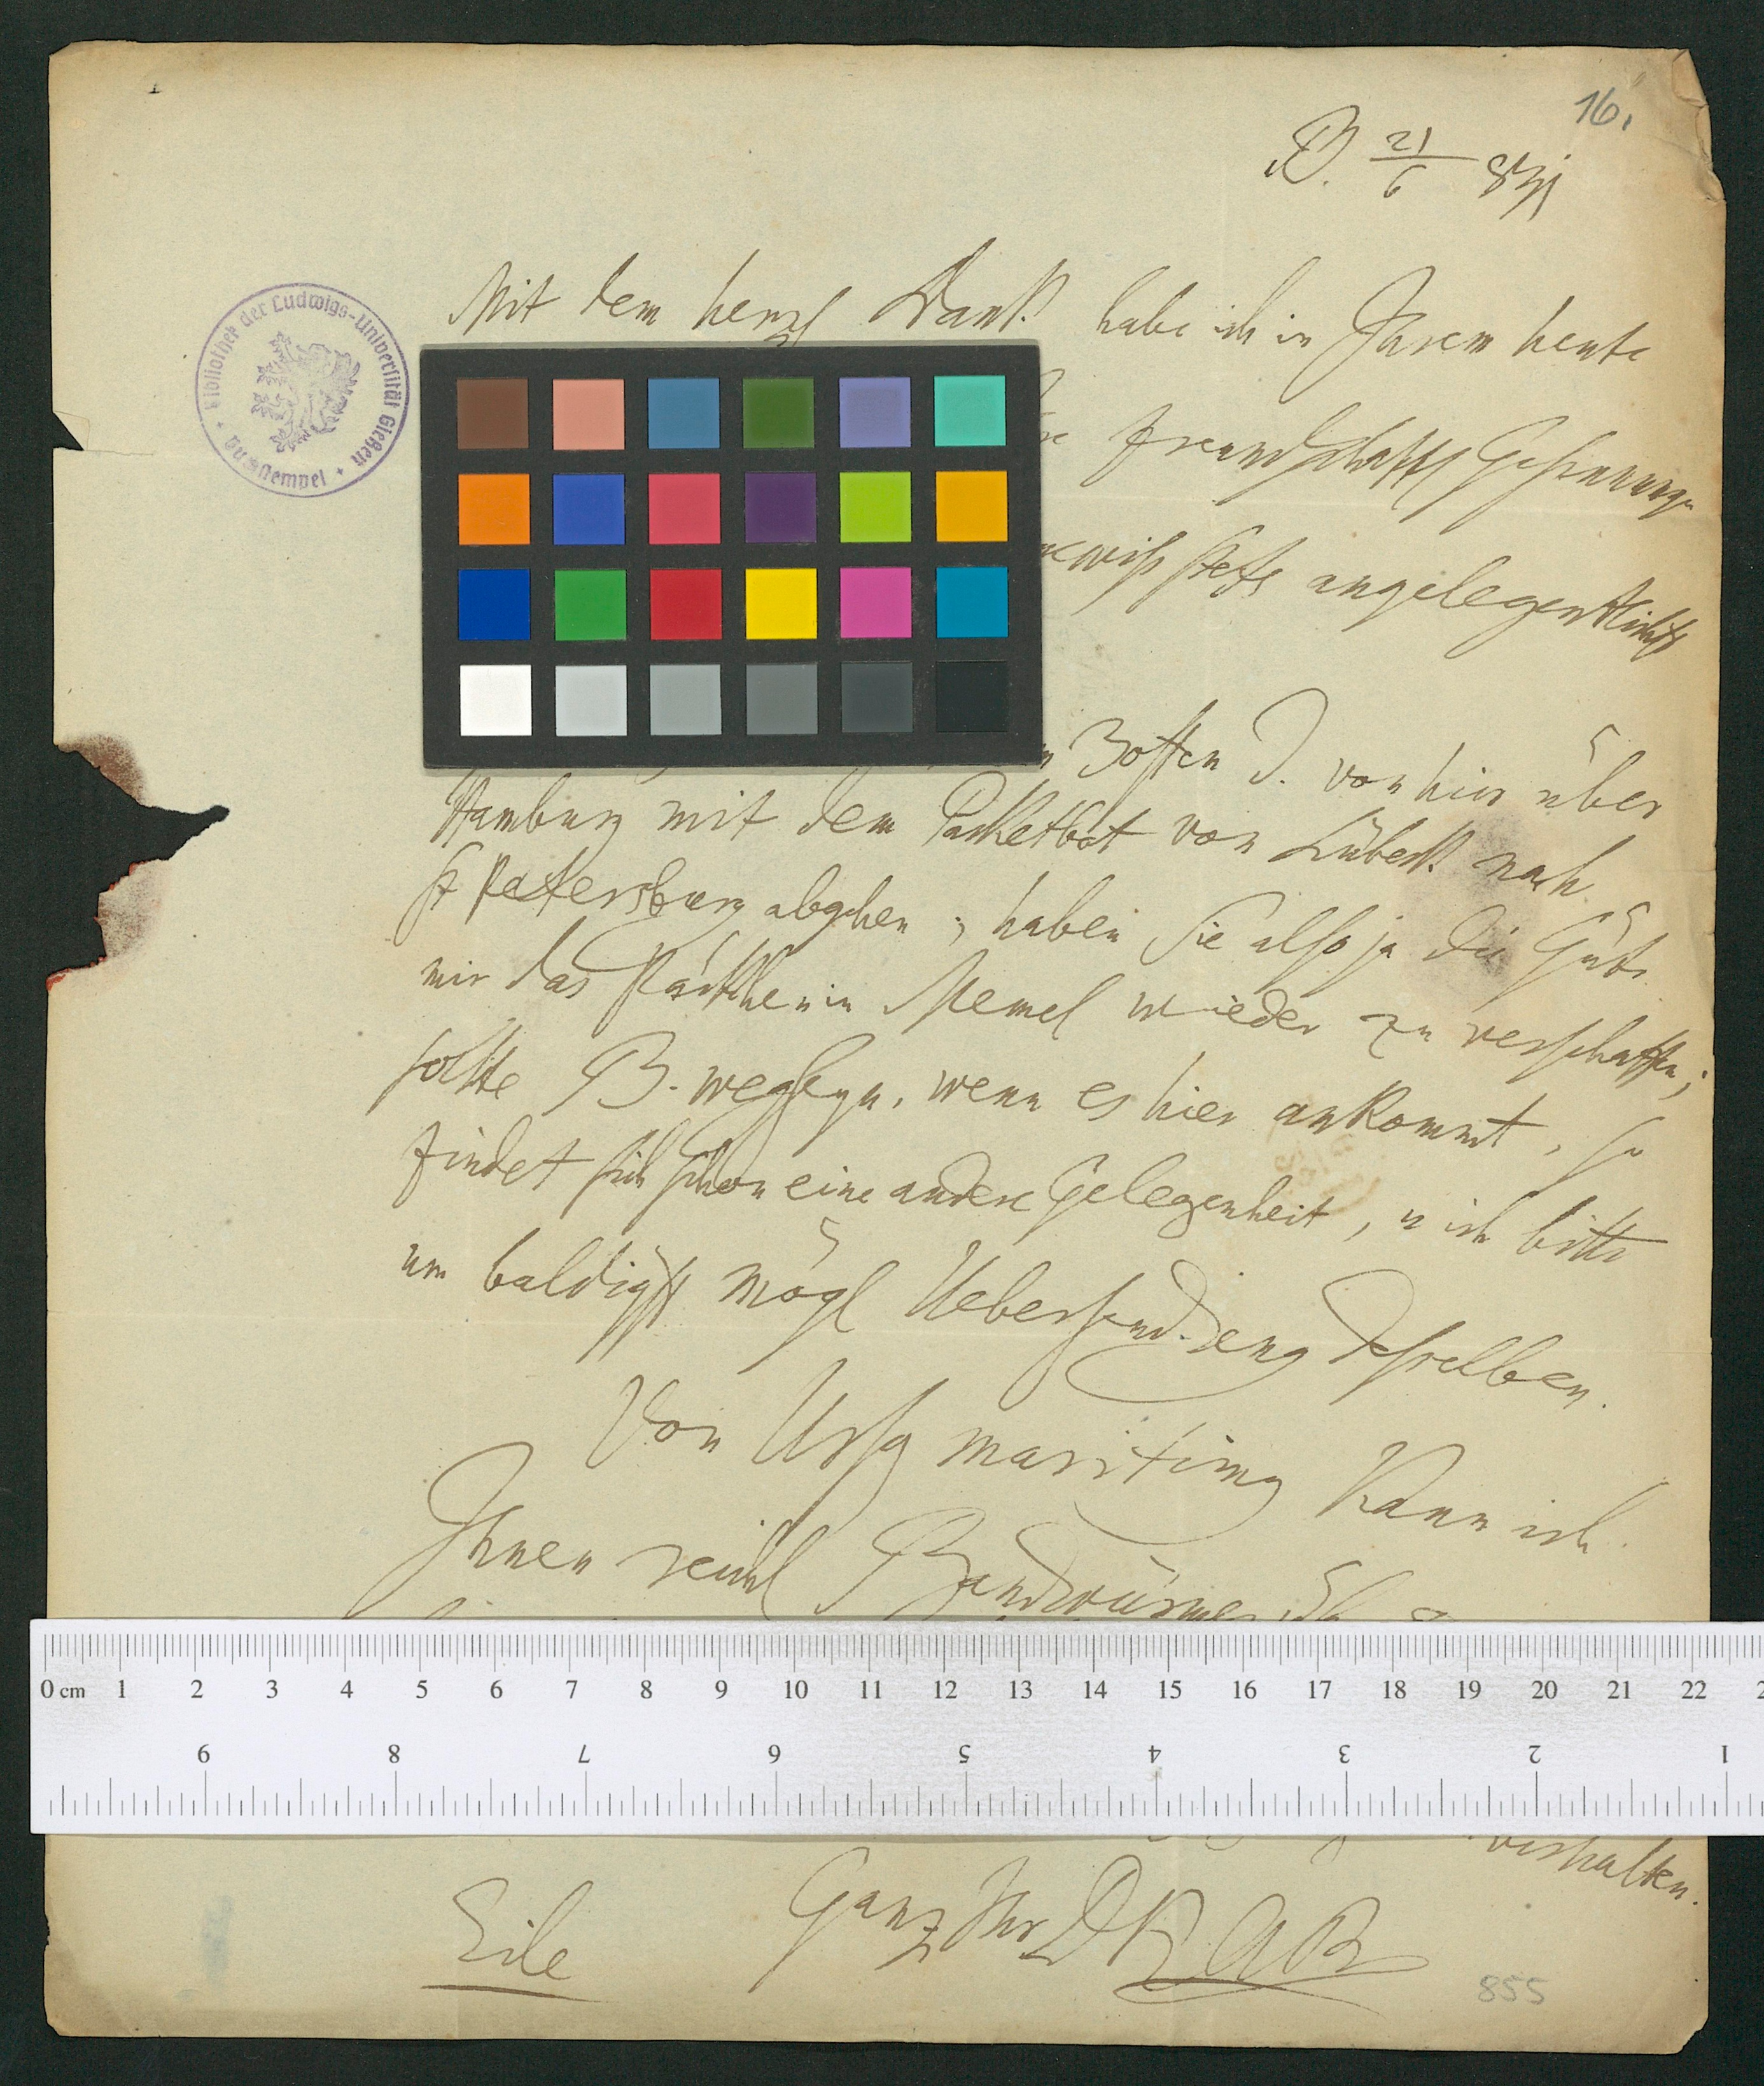 16.
B. 21/6 831
Mit dem herzl Dank habe ich in Ihrem heute
Freundschaftsgesinnungen
gewiß stets angelegentlichst
Bibliothek der Ludwigs-Universität Gießen
Hamburg mit dem Packetbot von Lübeck nach
St Petersburg abgehen; haben Sie also ja die Güte
mir das Päckchen in Memel wieder zu verschaffen;
sollte B. weg seyn, wenn es hier ankommt, so
findet sich schon eine andere Gelegenheit, u ich bitte
um baldigst mögl Uebersendung desselben.
von hier über
Von Urs maritimus kann ich
Ihnen Bandwürmer
0 cm 1 2 3 4 5 6 7 8 9 10 11 12 13 14 15 16 17 18 19 20 21 22
9 8 7 6 5 4 3 2 1
verhalten.
Eile Ganz Ihr
855